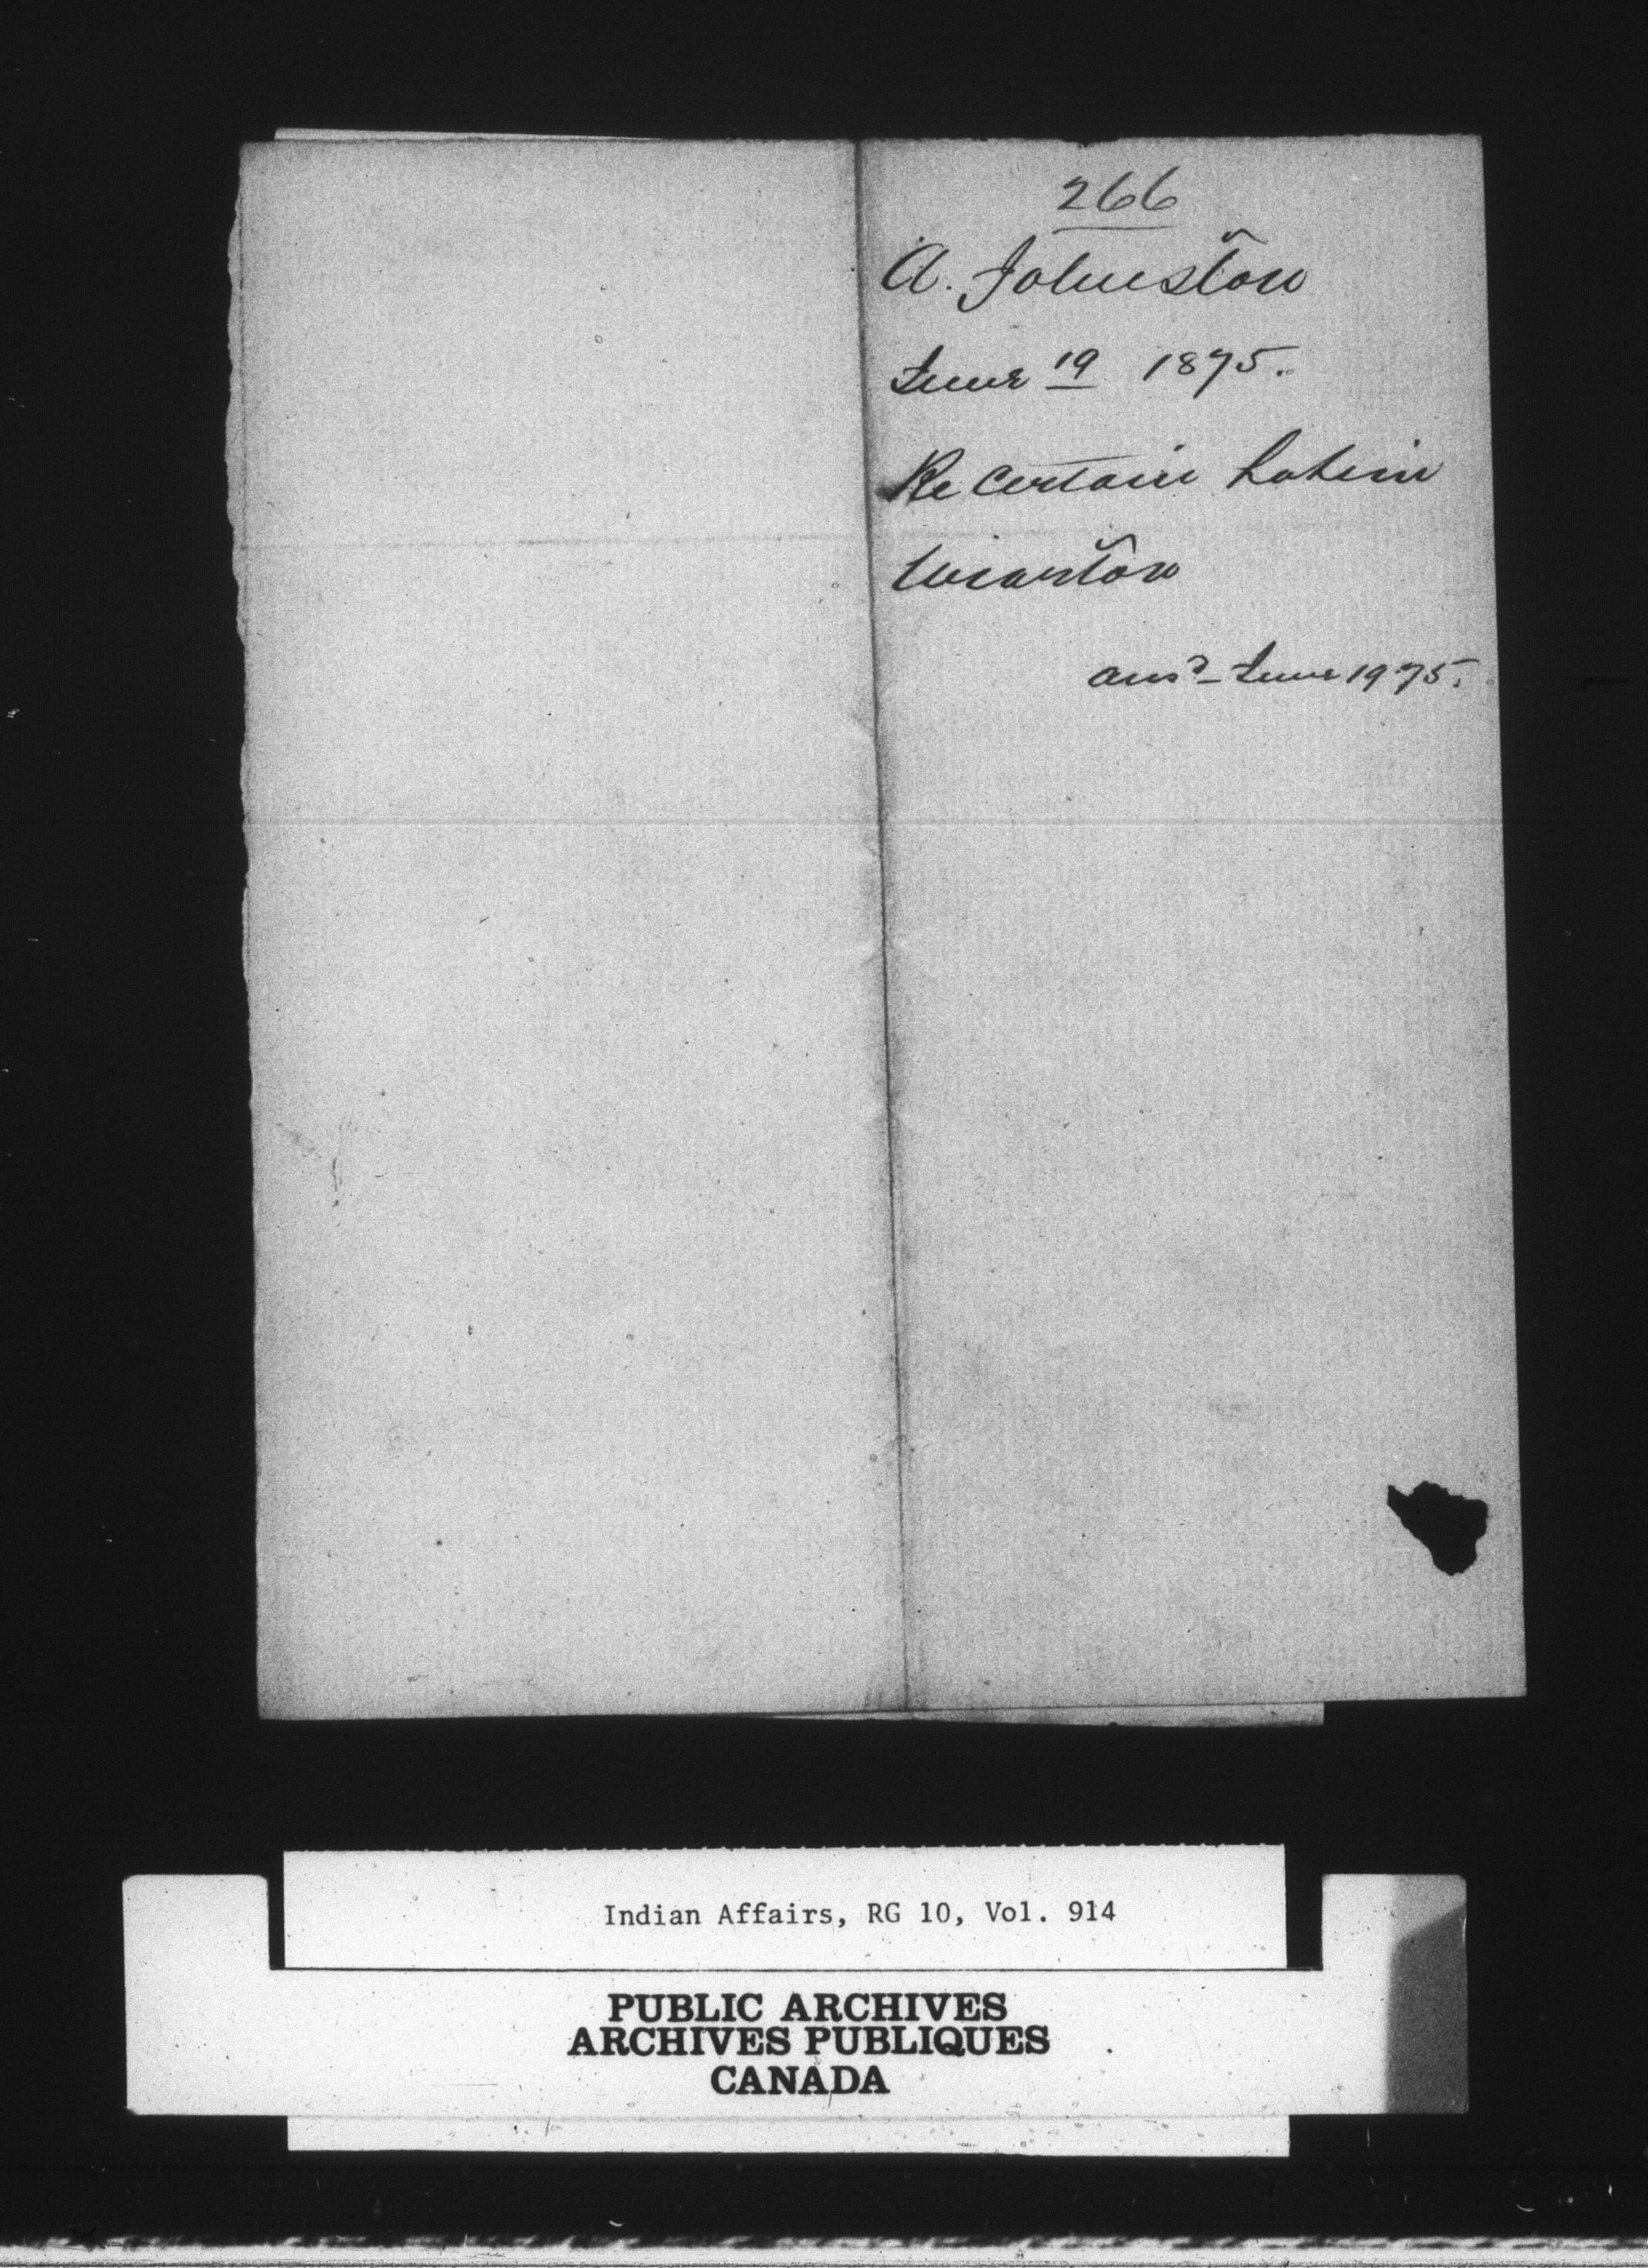 266
A. Johnston
June 19 1875.
Re Certain Lots in
Wiarton
ansd - June 19 75.
Indian Affairs, RG 10, Vol. 914
PUBLIC ARCHIVES
ARCHIVES PUBLIQUES
CANADA